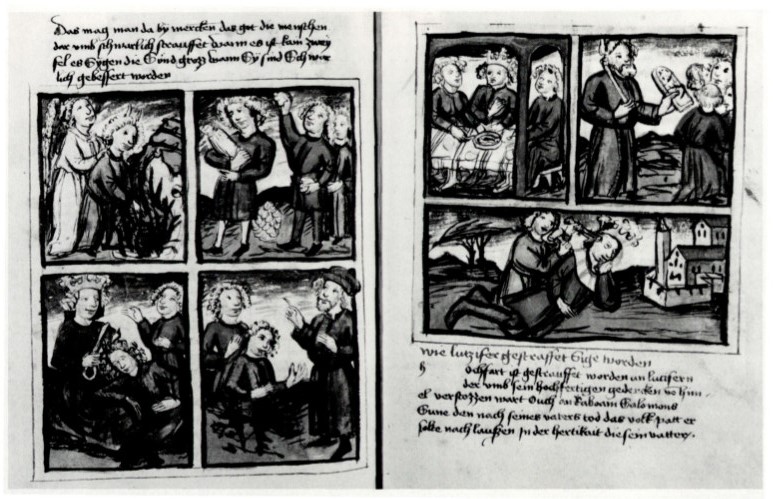 Das mag man da by mercken das got die menschen
dar vmb schwarlich strauffet wann es ist kain zwey
fel es sygen die Sünd groß wann Sy sind Sch
lich gebessert worden
wie lutzifer gestraffet Sige worden
h ochfart ist gestrauffet worden an lucifern
der vmb sein hochfertigen gedencken von him
el verstossen wart Ouch an Roboam Salomons
Sune den nach seines vaters tod das volk patt er
solte nach laussen jn der hertikait die sein vatter